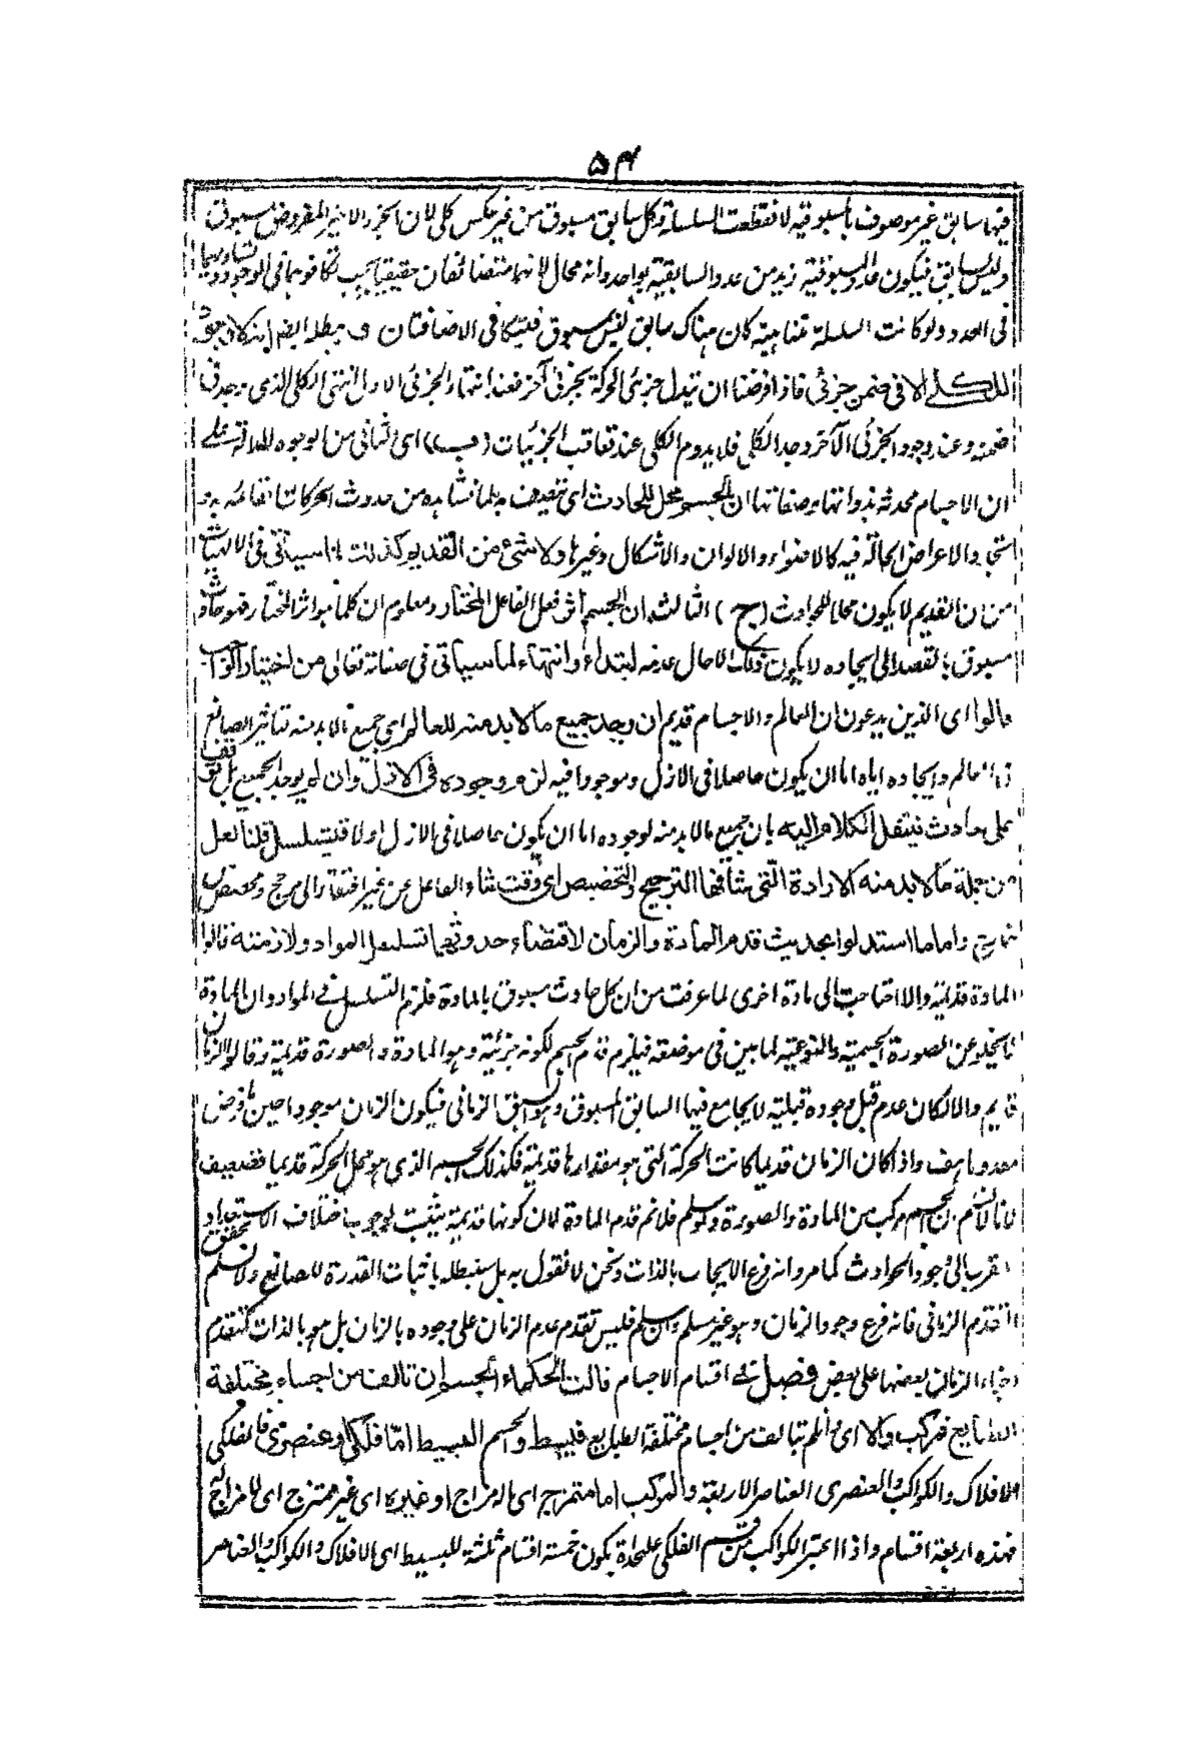 ۵۴
فيها سابق غير موصوف بالمسبوقية لانقطعت السلسلة وكل سابق مسبوق من غير عكس كلي لان الجزء الاخير المفروض مسبوق
وليس سابق فيكون عدد المسبوقية ازيد من عدد السابقية بواحد وانه محال لانهما متضائفان حقيقيا يجب تكافوهما في الوجود وتساويهما
في العدد ولو كانت السلسلة متناهية كان هناك سابق ليس بمسبوق فيتكافى الاضافتان و يبطله ايضا
للكلي الا في ضمن جزئي فاذا فرضنا ان تبدل جزئي الحركة بجزئي آخر فعند انتهاء الجزئي الاول انتهى الكلي الذي وجد في
ضمنه وعند وجود الجزئي الآخر وجد الكلي فلا يدوم الكلي عند تعاقب الجزئيات (ب) اي الثاني من الوجوه الدالة على
ان الاجسام محدثة بذواتها وصفاتها ان الجسم محل للحادث اي متصف به لما نشاهده من حدوث الحركات القائمة به و
استحالة الاعراض الحالة فيه كالاضواء والالوان والاشكال وغيرها ولا شئ من القديم كذلك لما سيأتي في الالهيات
من ان القديم لا يكون محلا للحوادث (ج) الثالث ان الجسم اثر فعل الفاعل المختار ومعلوم ان كلما هو اثر المختار فهو حادث
مسبوق بالقصد الى ايجاده لا يكون ذلك الا حال عدمه ابتداء او انتهاء لما سيأتي في صفاته تعالى من اختيار الواجب
قالوا اي الذين يدعون ان العالم والاجسام قديم ان وجد جميع ما لا بد منه للعالم اي جميع ما لا بد منه تاثير الصانع
في العالم وايجاده اياه اما ان يكون حاصلا في الازل وموجودا فيه لزم وجوده في الازل وان لم يوجد الجميع بل توقف
على حادث ينتقل الكلام اليه بان جميع ما لا بد منه لوجوده اما ان يكون حاصلا في الازل او لا فيتسلسل قلنا لعل
من جملة ما لا بد منه الارادة التي شانها الترجيح والتخصيص اي وقت شاء الفاعل من غير افتقار الى مرجح ومخصص
خارج واما ما استدلوا بحديث قدم المادة والزمان لاقتضاء حدوثهما تسلسل المواد ولازمنة قالوا
المادة قديمة والا احتاجت الى مادة اخرى لما عرفت من ان كل حادث مسبوق بالمادة فلزم التسلسل في المواد وان المادة
لا تخلو عن الصورة الجسمية والنوعية لما بين في موضعه فيلزم قدم الجسم لكونه جزئية وهو المادة والصورة قديمة وقالوا الزمان
قديم والا لكان عدم قبل وجوده قبلية لا يجامع فيها السابق المسبوق وهو السبق الزماني فيكون الزمان موجودا حين ما فرض
معدوما هف واذا كان الزمان قديما كانت الحركة التي هو مقدارها قديمة فكذلك الجسم الذي هو محل الحركة قديما فضعيف
لانا لا نسلم ان الجسم مركب من المادة والصورة ولو سلم فلا نم قدم المادة لان كونها قديمة يثبت لوجوب اختلاف الاستعداد
المقرب الى وجود الحوادث كما مر وانه فرع الايجاب بالذات ونحن لا نقول به بل سنبطله باثبات القدرة للصانع ولا نسلم تحقق
التقدم الزماني فانه فرع وجود الزمان وهو غير مسلم وان سلم فليس تقدم عدم الزمان على وجوده بالزمان بل هو بالذات كتقدم
اجزاء الزمان بعضها على بعض فصل في اقسام الاجسام قالت الحكماء الجسم ان تالف من اجساء مختلفة
الطبايع فمركب والا اي ان لم يتالف من اجسام مختلفة الطبايع فبسيط والجسم البسيط اما فلكي او عنصري فالفلكي
الافلاك والكواكب والعنصري العناصر الاربعة والمركب اما ممتزج اي له مزاج او غيره اي غير ممتزج اي لا مزاج له
فهذه اربعة اقسام واذا اعتبر الكواكب من قسم الفلكي علحدة يكون خمسة اقسام ثلثة للبسيط اي الافلاك والكواكب والعناصر